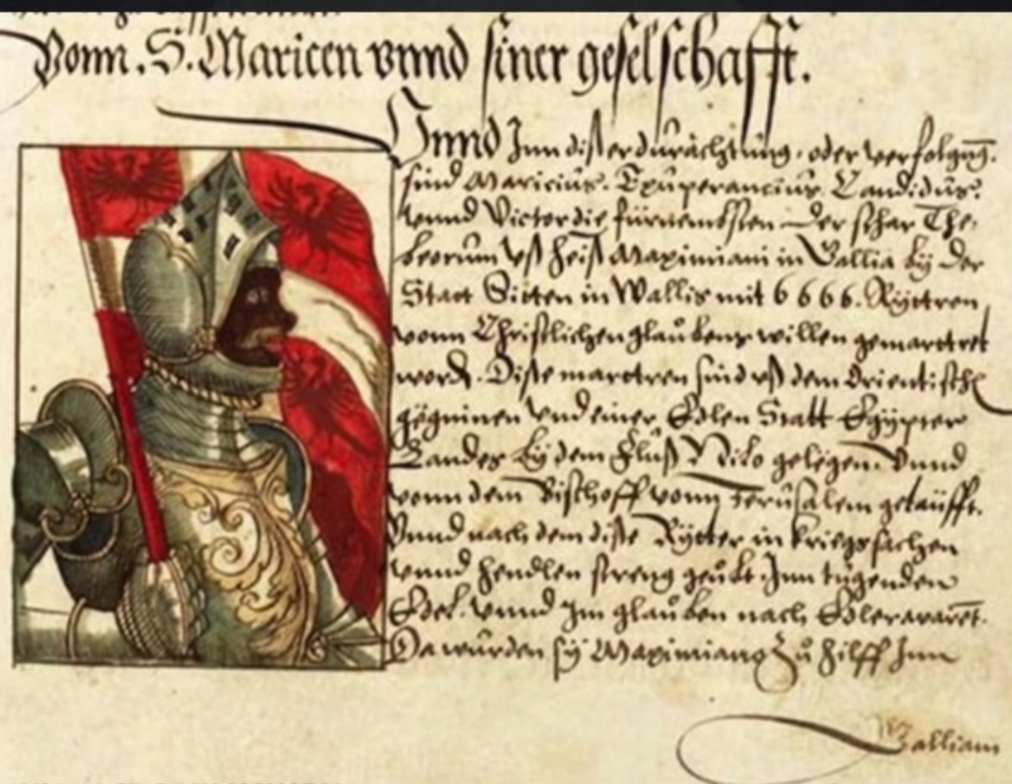 Vonn. S. Maricen vnnd siner geselschafft.
Vnnd Jnn diser durächtung. oder verfolgūg.
sind Maricius. Exuperancius. Candidus.
vnnd Victor die fürnembsten der schar The-
beorum vß heiß Maximiani in Vallia by der
Statt Sitten in Wallis mit 6666. Ryttren
vonn Christlichen gloubens willen gemarctret
word. Dise marctren sind vß dem Orientisch
geginnen vnd einer Edlen Statt Egypter
Landes by dem Fluß Nilo gelegen. Vnnd
vonn dem Bischoff vonn Jerusalem getäufft.
Vnnd nach dem dise Rytter in kriegssachen
vnnd hendlen streng geübt. Jnn tugenden
Edel. vnnd Jm glauben nach Edler
Da wurden sy Maximiano zu hilff Jnn
Galliam